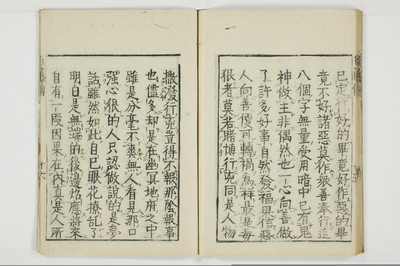 已定行好的畢竟好作惡的畢
竟不好諸惡莫作眾善奉行這
八個字無量受用暗中已有鬼
神做主非偶然也一心向善做
了許多好事自然發福果信惡
人向善便可轉禍為祥最是毒
狠者莫若賭博行兇同是人物
撒潑行兇得不報那陰報事
也儘多却是在幽冥地府之中
雖是分毫不爽無人看見那口
强心狠的人只認做說的是夢
話雖然如此自已眼花撩亂了
明白是無端的後邊應將來
自有一段因果在內真是人所